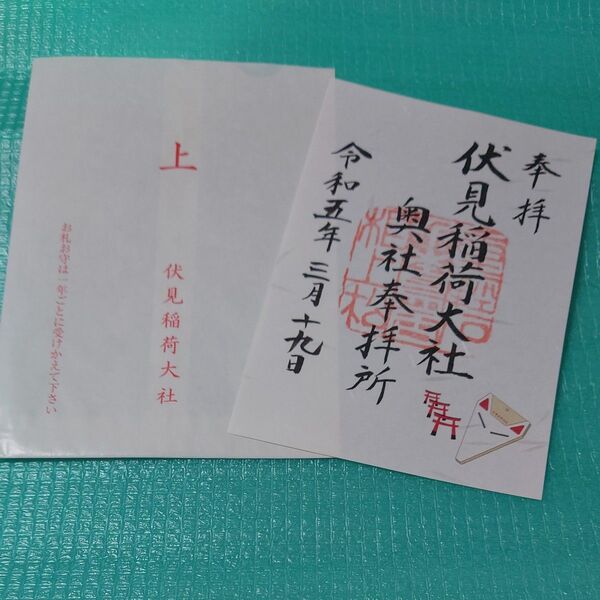 奉拝
伏見稲荷大社
奥社奉拝所
令和五年三月十九日
上
伏見稲荷大社
お札お守は一年ごとに受けかえて下さい